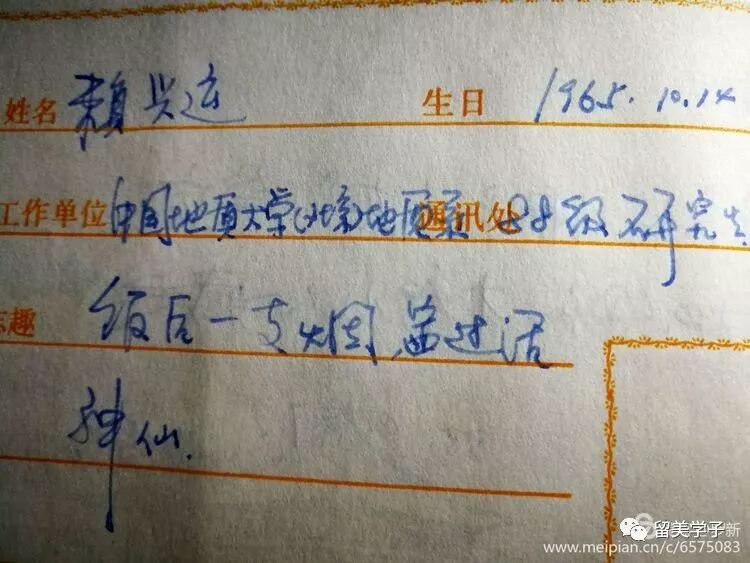 姓名 赖兴运 生日 1965.10.14
工作单位 中国地质大学(北京)地质系 通讯处 88级研究生
志趣 饭后一支烟,赛过活
神仙.
留美学子
www.meipian.cn/c/6575083